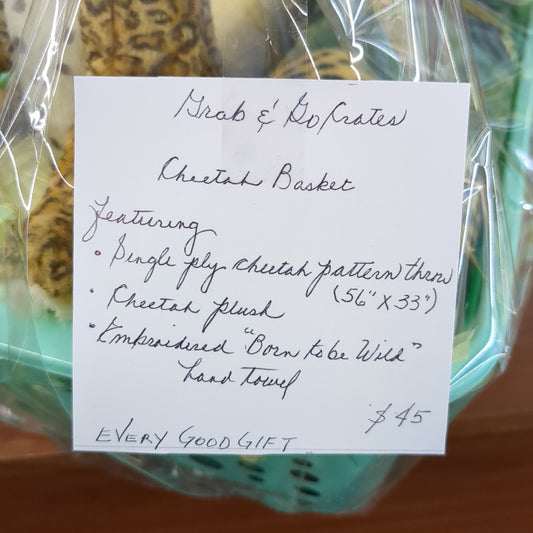 Grab & Go Crates
Cheetah Basket
Featuring
• Single ply cheetah pattern throw
(56" X 33")
• Cheetah plush
• Embroidered "Born to be Wild"
hand towel
$45
EVERY GOOD GIFT